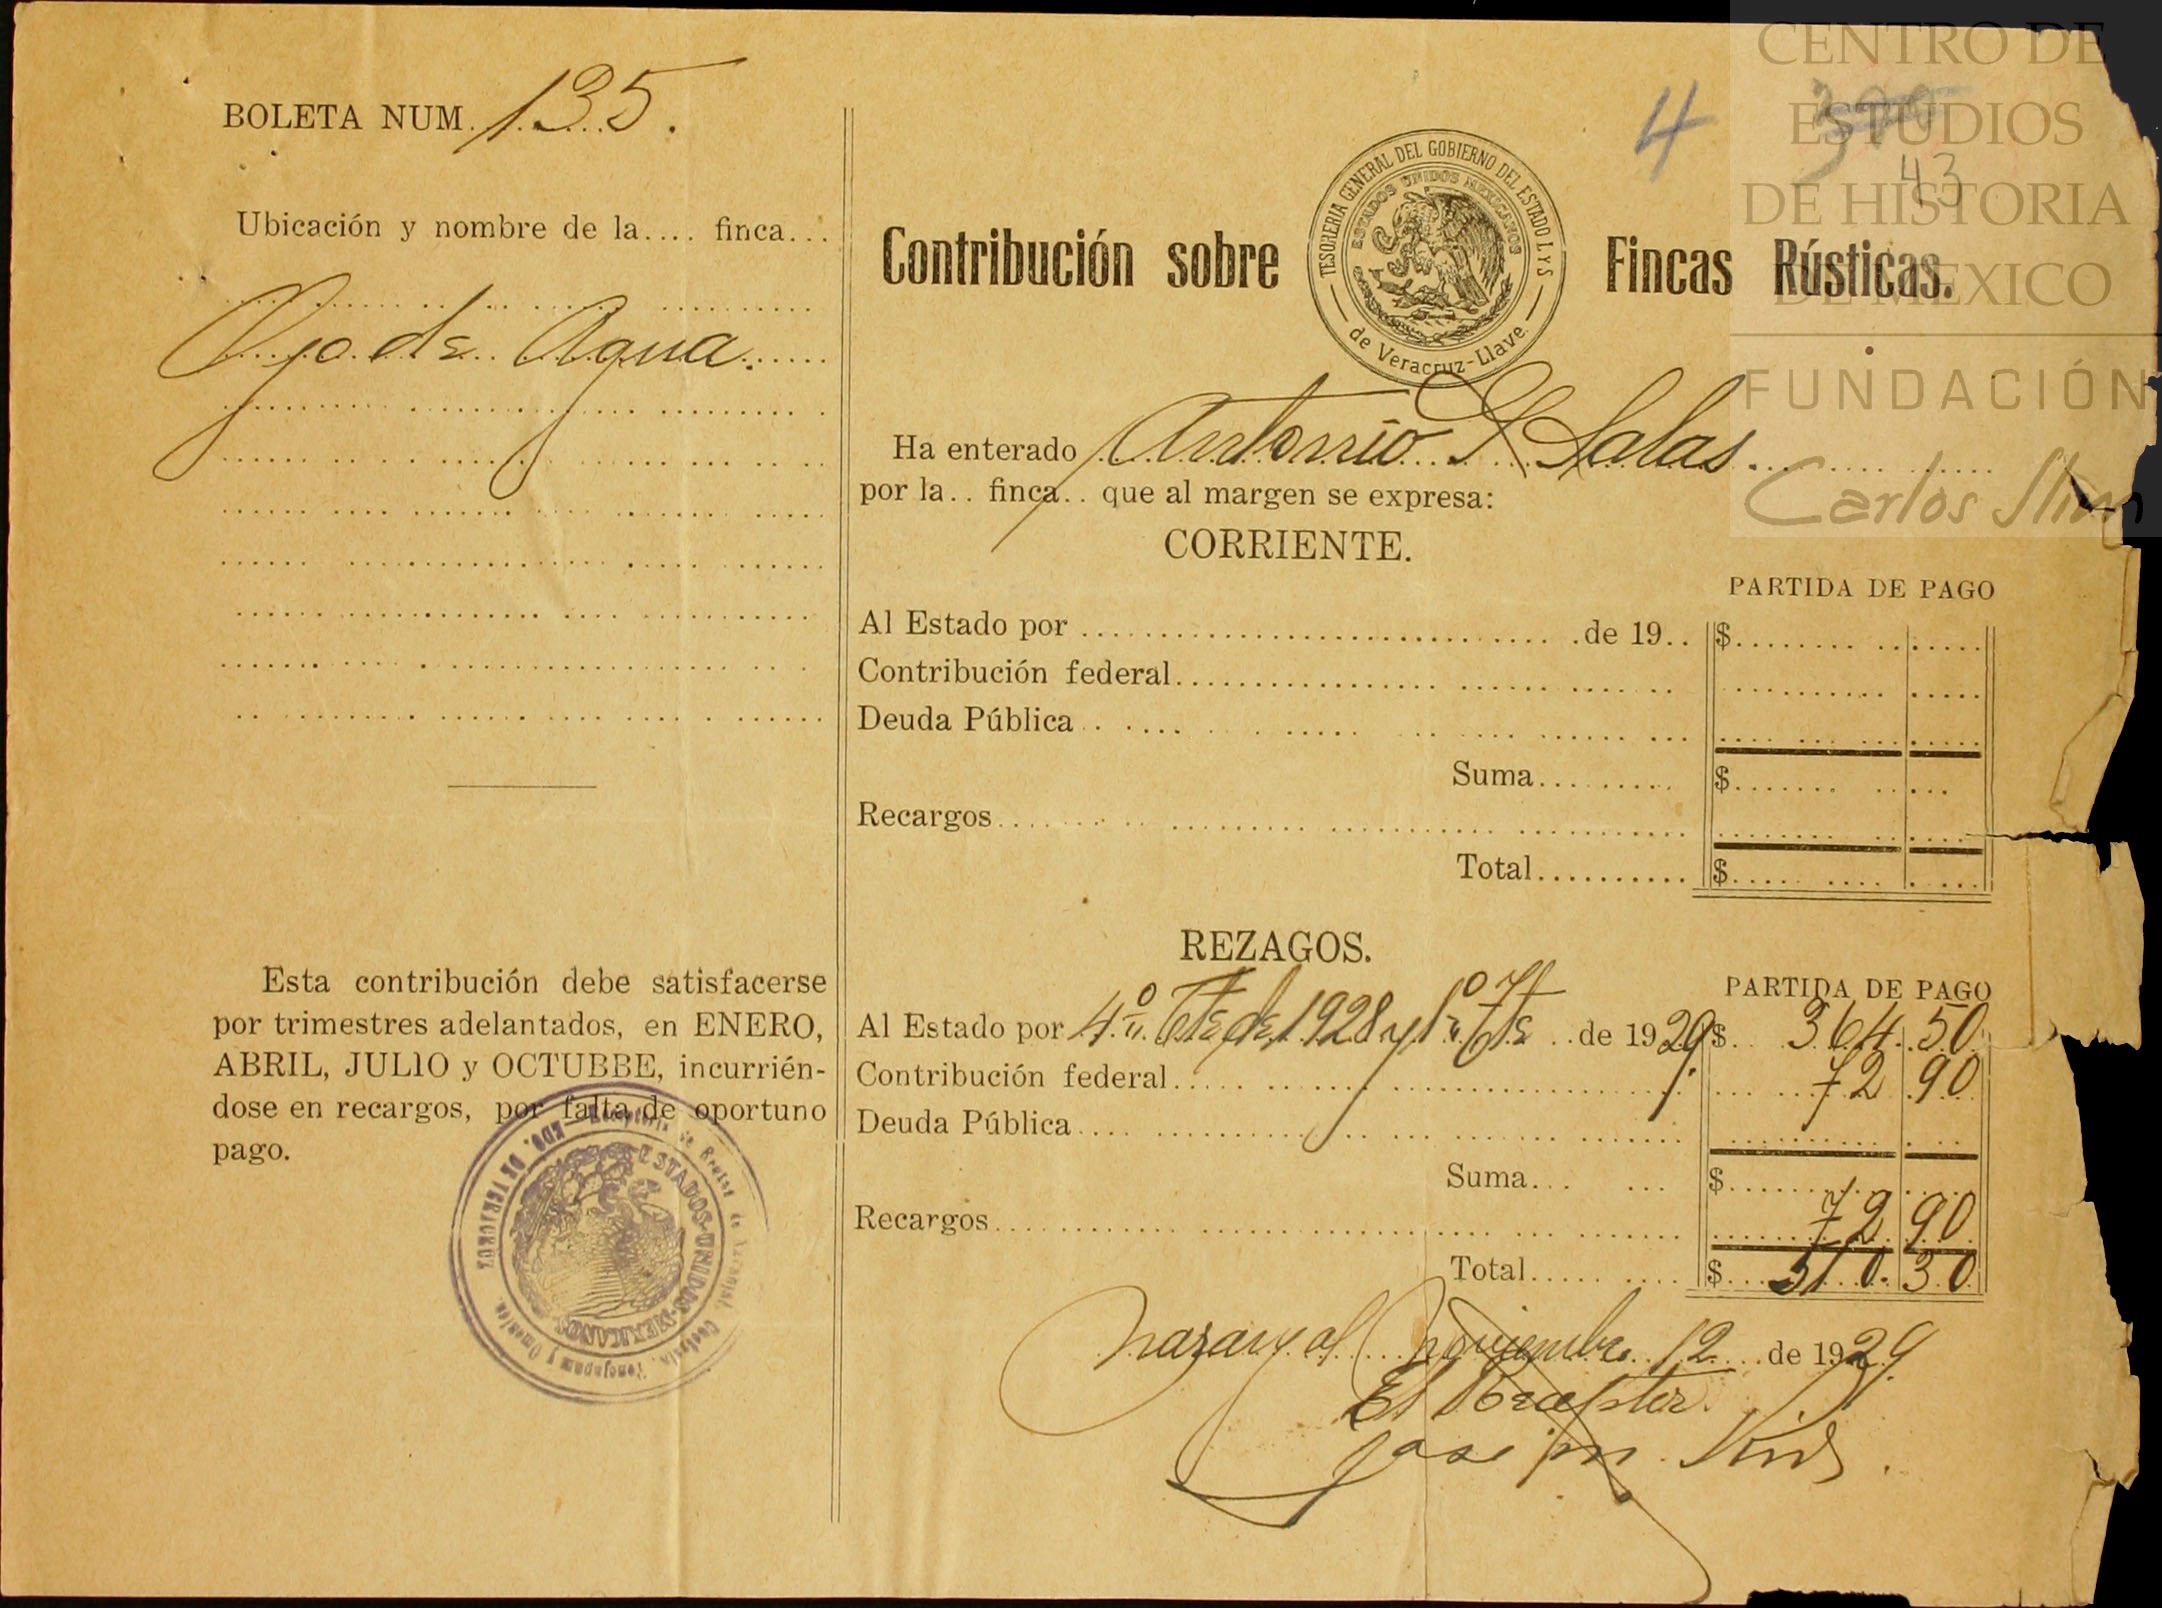 BOLETA NUM. 135.
Ubicación y nombre de la.... finca...
Ojo de Agua.
Esta contribución debe satisfacerse
por trimestres adelantados, en ENERO,
ABRIL, JULIO y OCTUBBE, incurrién-
dose en recargos, por falta de oportuno
pago.
EDO. DE VERACRUZ
ESTADOS-UNIDOS-MEXICANOS
4
43
Contribución sobre Fincas Rústicas.
TESORERIA GENERAL DEL GOBIERNO DEL ESTADO L Y S
ESTADOS UNIDOS MEXICANOS
de Veracruz-Llave.
Ha enterado Antonio Y Salas.
por la.. finca.. que al margen se expresa:
CORRIENTE.
PARTIDA DE PAGO
Al Estado por de 19.. $
Contribución federal
Deuda Pública
Suma $
Recargos
Total $
REZAGOS.
PARTIDA DE PAGO
Al Estado por 4º Tte de 1928 y 1º Tte de 1929. $ 364 50
Contribución federal 72 90
Deuda Pública
Suma $
Recargos 72 90
Total $ 510. 30
Noviembre 12 de 1929.
El Receptor.
Jose M.
CENTRO DE
ESTUDIOS
DE HISTORIA
DE MEXICO
FUNDACIÓN
Carlos Slim